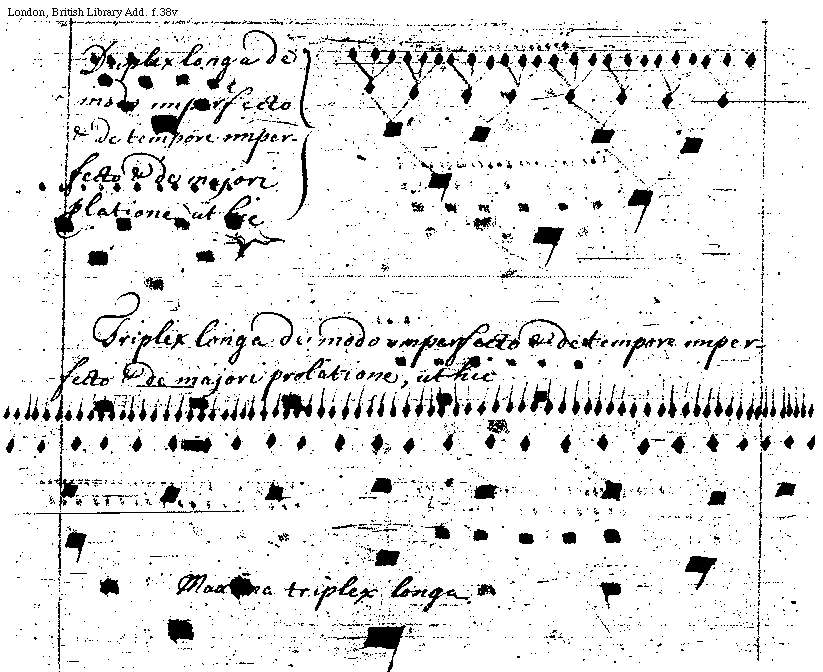 London, British Library Add. f.38v
Triplex longa de
modo imperfecto
& de tempore imper-
fecto & de majori
platione, ut hic
Triplex longa de modo imperfecto & de tempore imper-
fecto & de majori prolatione, ut hic
Maxima triplex longa.